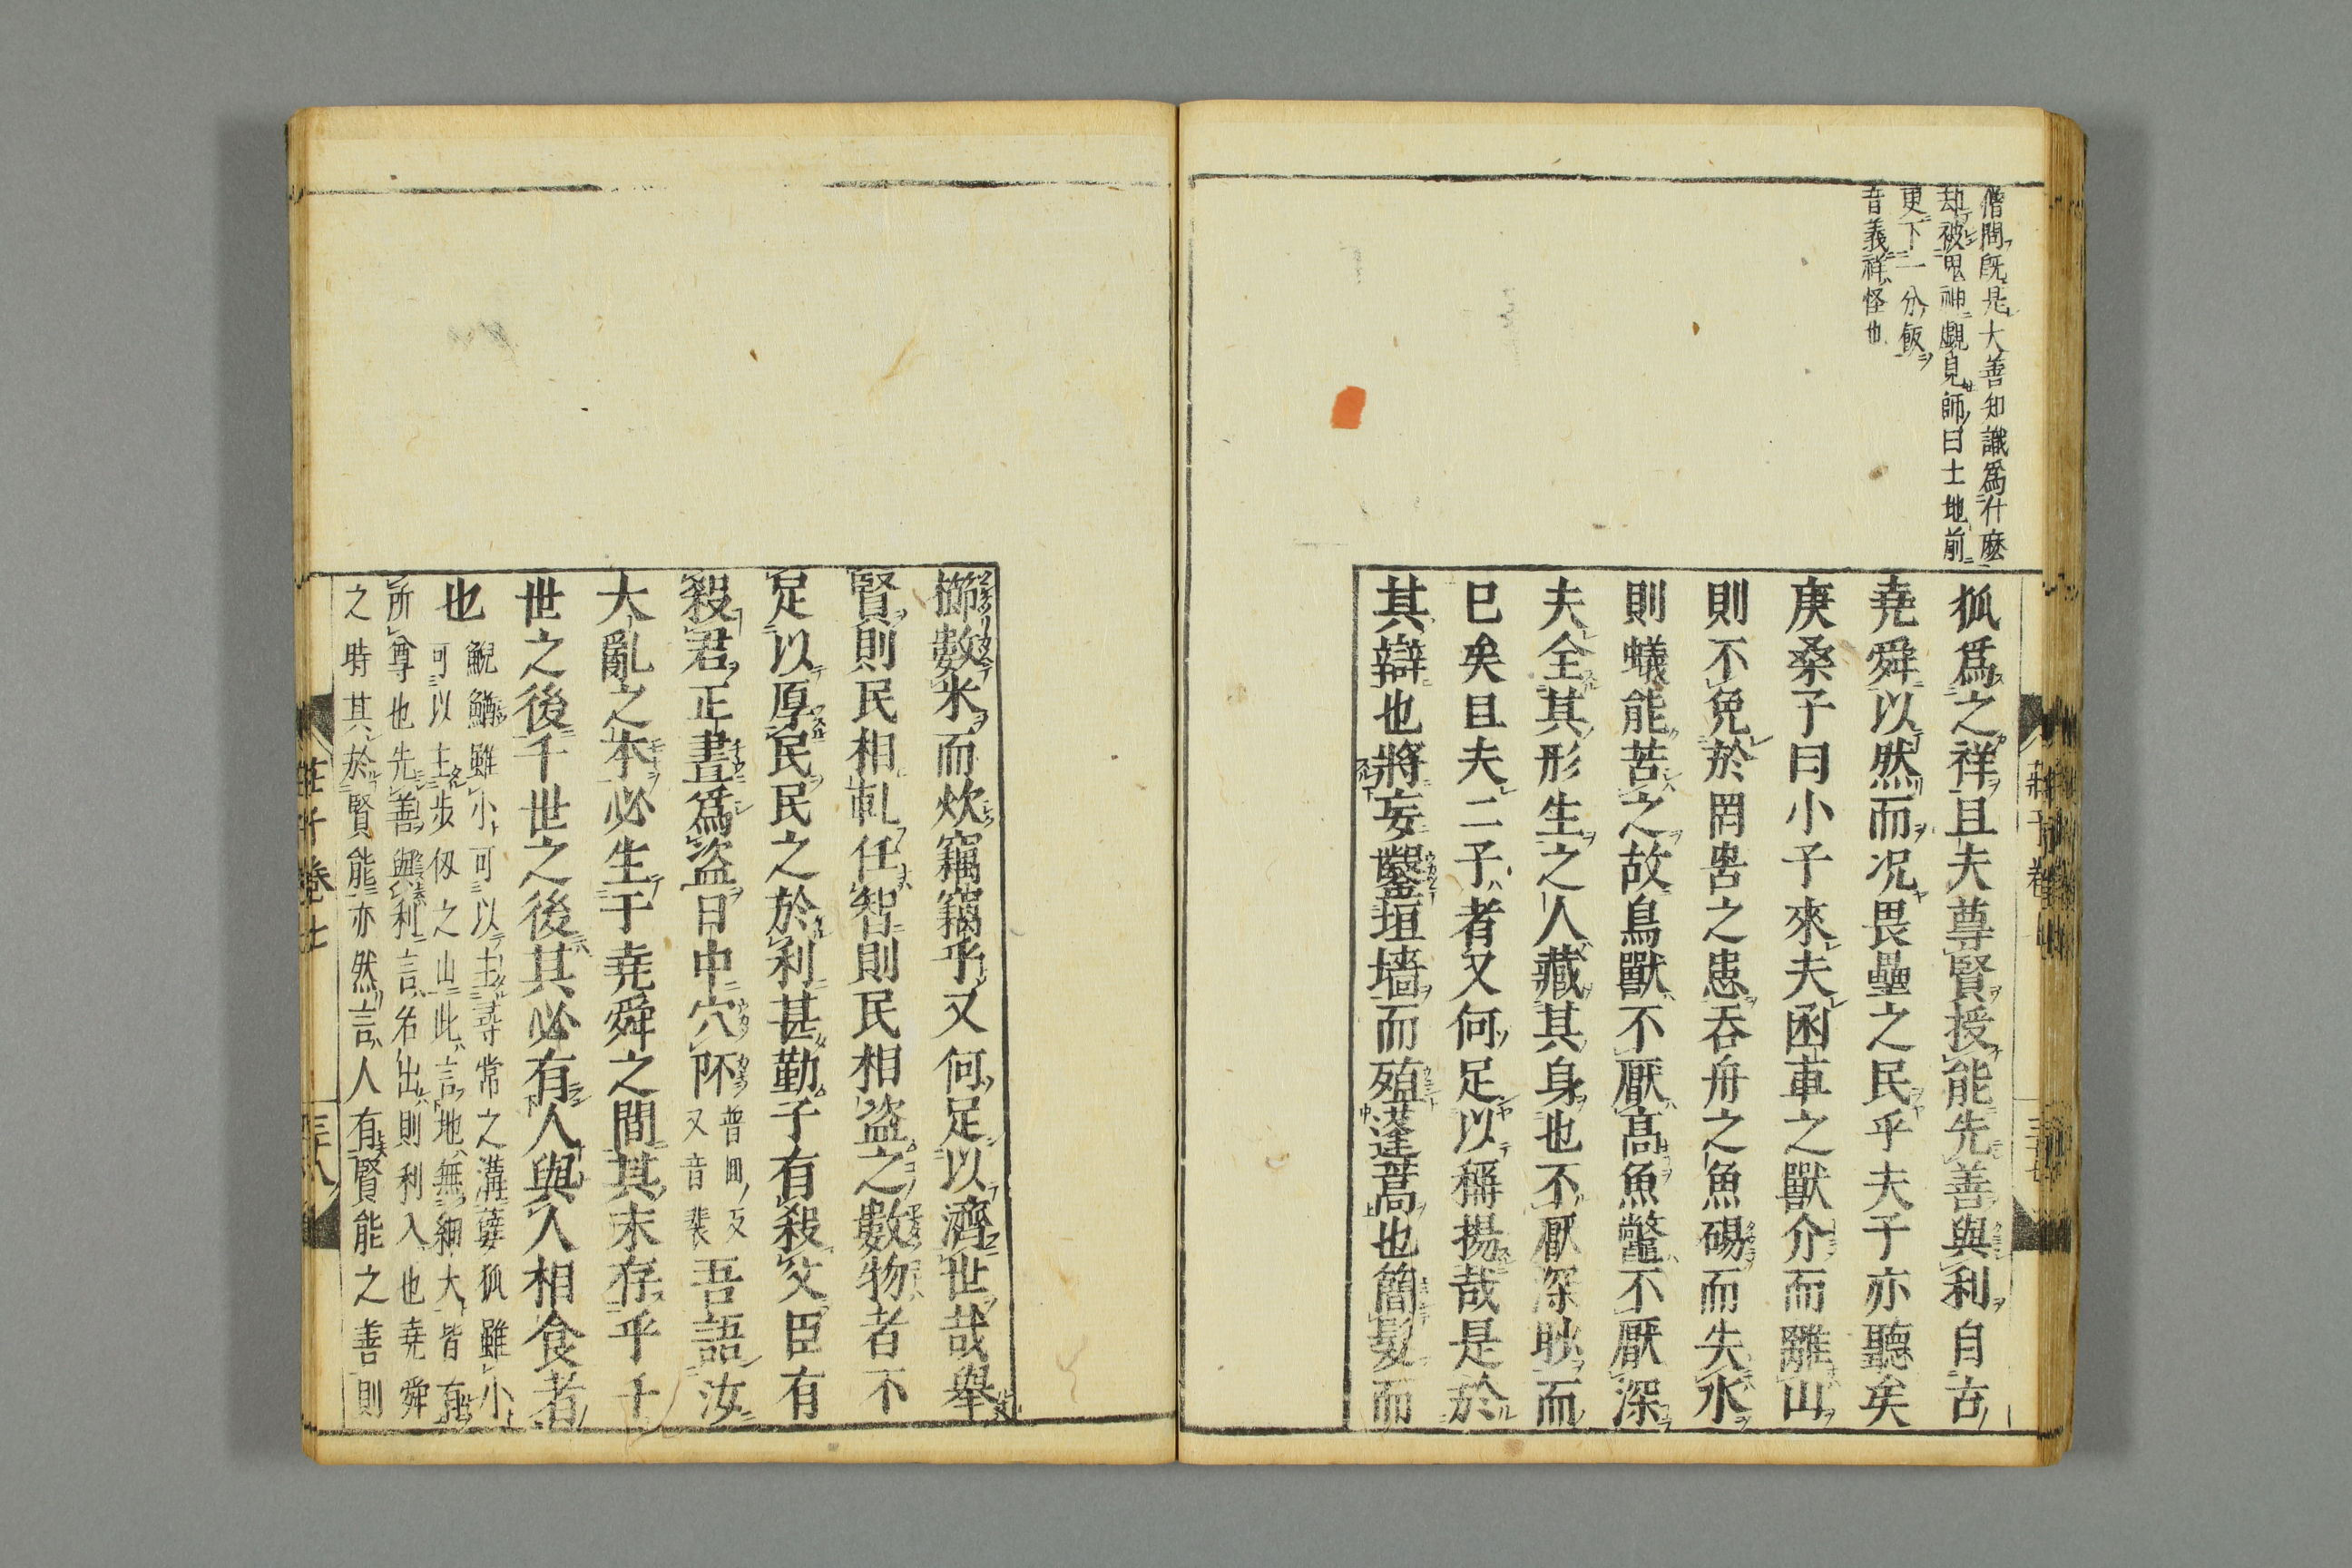 僧問既是大善知識爲什麽
却被鬼神覷見師曰土地前
更下一分飯
音義祥怪也
狐爲之祥且夫尊賢授能先善與利自古
堯舜以然而况畏壘之民乎夫子亦聽矣
庚桑子曰小子來夫函車之獸介而離山
則不免於罔罟之患吞舟之魚碭而失水
則蟻能苦之故鳥獸不厭高魚鼈不厭深
夫全其形生之人藏其身也不厭深眇而
已矣且夫二子者又何足以稱揚哉是於
其辯也將妄鑿垣墻而殖蓬蒿也簡髮而
櫛數米而炊竊竊乎又何足以濟世哉舉
賢則民相軋任智則民相盗之數物者不
足以厚民民之於利甚勤子有殺父臣有
殺君正晝爲盗日中穴阫普回反又音裴吾語汝
大亂之本必生于堯舜之間其末存乎千
世之後千世之後其必有人與人相食者
也
鯢鰌雖小可以主尋常之溝㜸狐雖小
可以主步仭之山此言地無細大皆有
所尊也先善與利言名出則利入也堯舜
之時其於賢能亦然言人有賢能之善則
莊子卷七
三十八